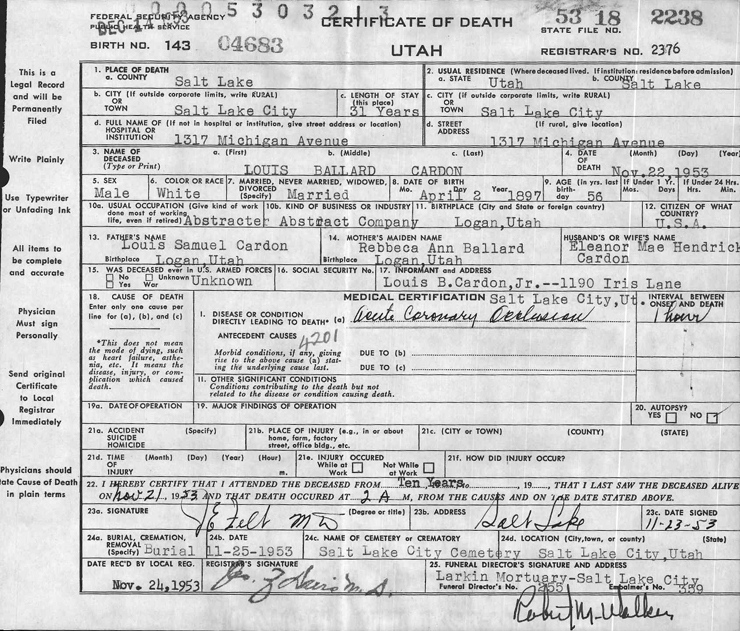 0005303213
FEDERAL SECURITY AGENCY
PUBLIC HEALTH SERVICE
CERTIFICATE OF DEATH
53 18 2238
STATE FILE NO.
BIRTH NO. 143 04683
UTAH
REGISTRAR'S NO. 2376
This is a
Legal Record
and will be
Permanently
Filed
Write Plainly
Use Typewriter
or Unfading Ink
All items to
be complete
and accurate
Physician
Must sign
Personally
Send original
Certificate
to Local
Registrar
Immediately
Physicians should
state Cause of Death
in plain terms
1. PLACE OF DEATH
a. COUNTY Salt Lake
2. USUAL RESIDENCE (Where deceased lived. If institution: residence before admission)
a. STATE Utah b. COUNTY Salt Lake
b. CITY (If outside corporate limits, write RURAL)
OR
TOWN Salt Lake City
c. LENGTH OF STAY
(this place)
31 Years
c. CITY (If outside corporate limits, write RURAL)
OR
TOWN Salt Lake City
d. FULL NAME OF (If not in hospital or institution, give street address or location)
HOSPITAL OR
INSTITUTION 1317 Michigan Avenue
d. STREET (If rural, give location)
ADDRESS 1317 Michigan Avenue
3. NAME OF a. (First) b. (Middle) c. (Last)
DECEASED
(Type or Print) LOUIS BALLARD CARDON
4. DATE (Month) (Day) (Year)
OF
DEATH Nov.22,1953
5. SEX
Male
6. COLOR OR RACE
White
7. MARRIED, NEVER MARRIED, WIDOWED,
DIVORCED
(Specify) Married
8. DATE OF BIRTH
Mo. Day Year
April 2 1897
9. AGE (in yrs. last
birthday) 56
If Under 1 Yr.
Mos. Days
If Under 24 Hrs.
Hrs. Min.
10a. USUAL OCCUPATION (Give kind of work
done most of working
life, even if retired) Abstracter
10b. KIND OF BUSINESS OR INDUSTRY
Abstract Company
11. BIRTHPLACE (City and State or foreign country)
Logan,Utah
12. CITIZEN OF WHAT
COUNTRY?
U.S.A.
13. FATHER'S NAME
Louis Samuel Cardon
Birthplace Logan,Utah
14. MOTHER'S MAIDEN NAME
Rebbeca Ann Ballard
Birthplace Logan,Utah
HUSBAND'S OR WIFE'S NAME
Eleanor Mae Hendrick
Cardon
15. WAS DECEASED ever in U.S. ARMED FORCES
No Unknown
Yes War
Unknown
16. SOCIAL SECURITY No.
17. INFORMANT and ADDRESS
Louis B.Cardon,Jr.--1190 Iris Lane
Salt Lake City,Ut.
18. CAUSE OF DEATH
Enter only one cause per
line for (a), (b), and (c)
*This does not mean
the mode of dying, such
as heart failure, asthenia, etc. It means the
disease, injury, or complication which caused
death.
MEDICAL CERTIFICATION
INTERVAL BETWEEN
ONSET AND DEATH
I. DISEASE OR CONDITION
DIRECTLY LEADING TO DEATH* (a) Acute Coronary Occlusion
1 hour
ANTECEDENT CAUSES 4201
Morbid conditions, if any, giving
rise to the above cause (a) stating the underlying cause last.
DUE TO (b)
DUE TO (c)
11. OTHER SIGNIFICANT CONDITIONS
Conditions contributing to the death but not
related to the disease or condition causing death.
19a. DATE OF OPERATION
19. MAJOR FINDINGS OF OPERATION
20. AUTOPSY?
YES NO
21a. ACCIDENT (Specify)
SUICIDE
HOMICIDE
21b. PLACE OF INJURY (e.g., in or about
home, farm, factory
street, office bldg., etc.
21c. (CITY or TOWN) (COUNTY) (STATE)
21d. TIME (Month) (Day) (Year) (Hour)
OF
INJURY m.
21e. INJURY OCCURED
While at Work
Not While at Work
21f. HOW DID INJURY OCCUR?
22. I HEREBY CERTIFY THAT I ATTENDED THE DECEASED FROM Ten Years 19, THAT I LAST SAW THE DECEASED ALIVE
ON Nov 21, 1953 AND THAT DEATH OCCURED AT 2 A M, FROM THE CAUSES AND ON THE DATE STATED ABOVE.
23a. SIGNATURE (Degree or title)
J E Felt MD
23b. ADDRESS
Salt Lake
23c. DATE SIGNED
11-23-53
24a. BURIAL, CREMATION,
REMOVAL
(Specify) Burial
24b. DATE
11-25-1953
24c. NAME OF CEMETERY OR CREMATORY
Salt Lake City Cemetery
24d. LOCATION (City,town, or county) (State)
Salt Lake City,Utah
DATE REC'D BY LOCAL REG.
Nov. 24,1953
REGISTRAR'S SIGNATURE
25. FUNERAL DIRECTOR'S SIGNATURE AND ADDRESS
Larkin Mortuary-Salt Lake City
Funeral Director's No. 255 Embalmer's No. 359
Robert M. Walker